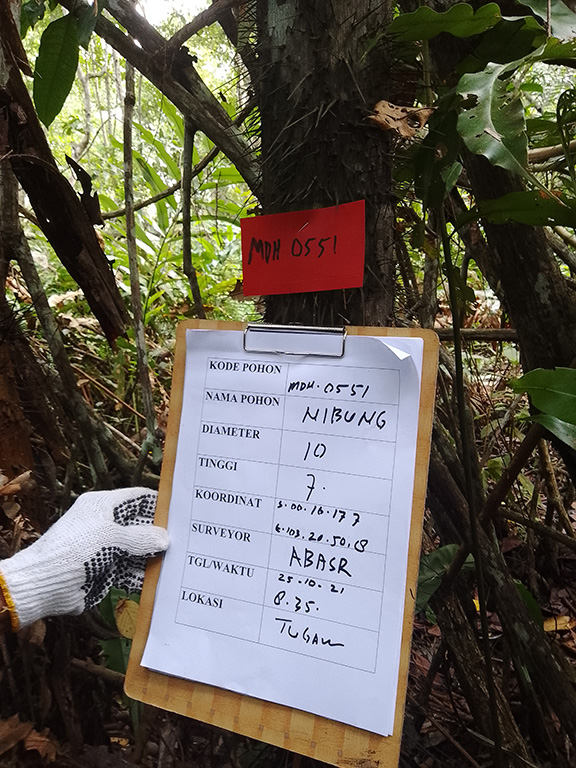 MDH 0551
KODE POHON MDH.0551
NAMA POHON NIBUNG
DIAMETER 10
TINGGI 7.
KOORDINAT S.00.16.177
E.103.20.50.
SURVEYOR ABASR
TGL/WAKTU 25.10.21
8.35.
LOKASI TUGAW